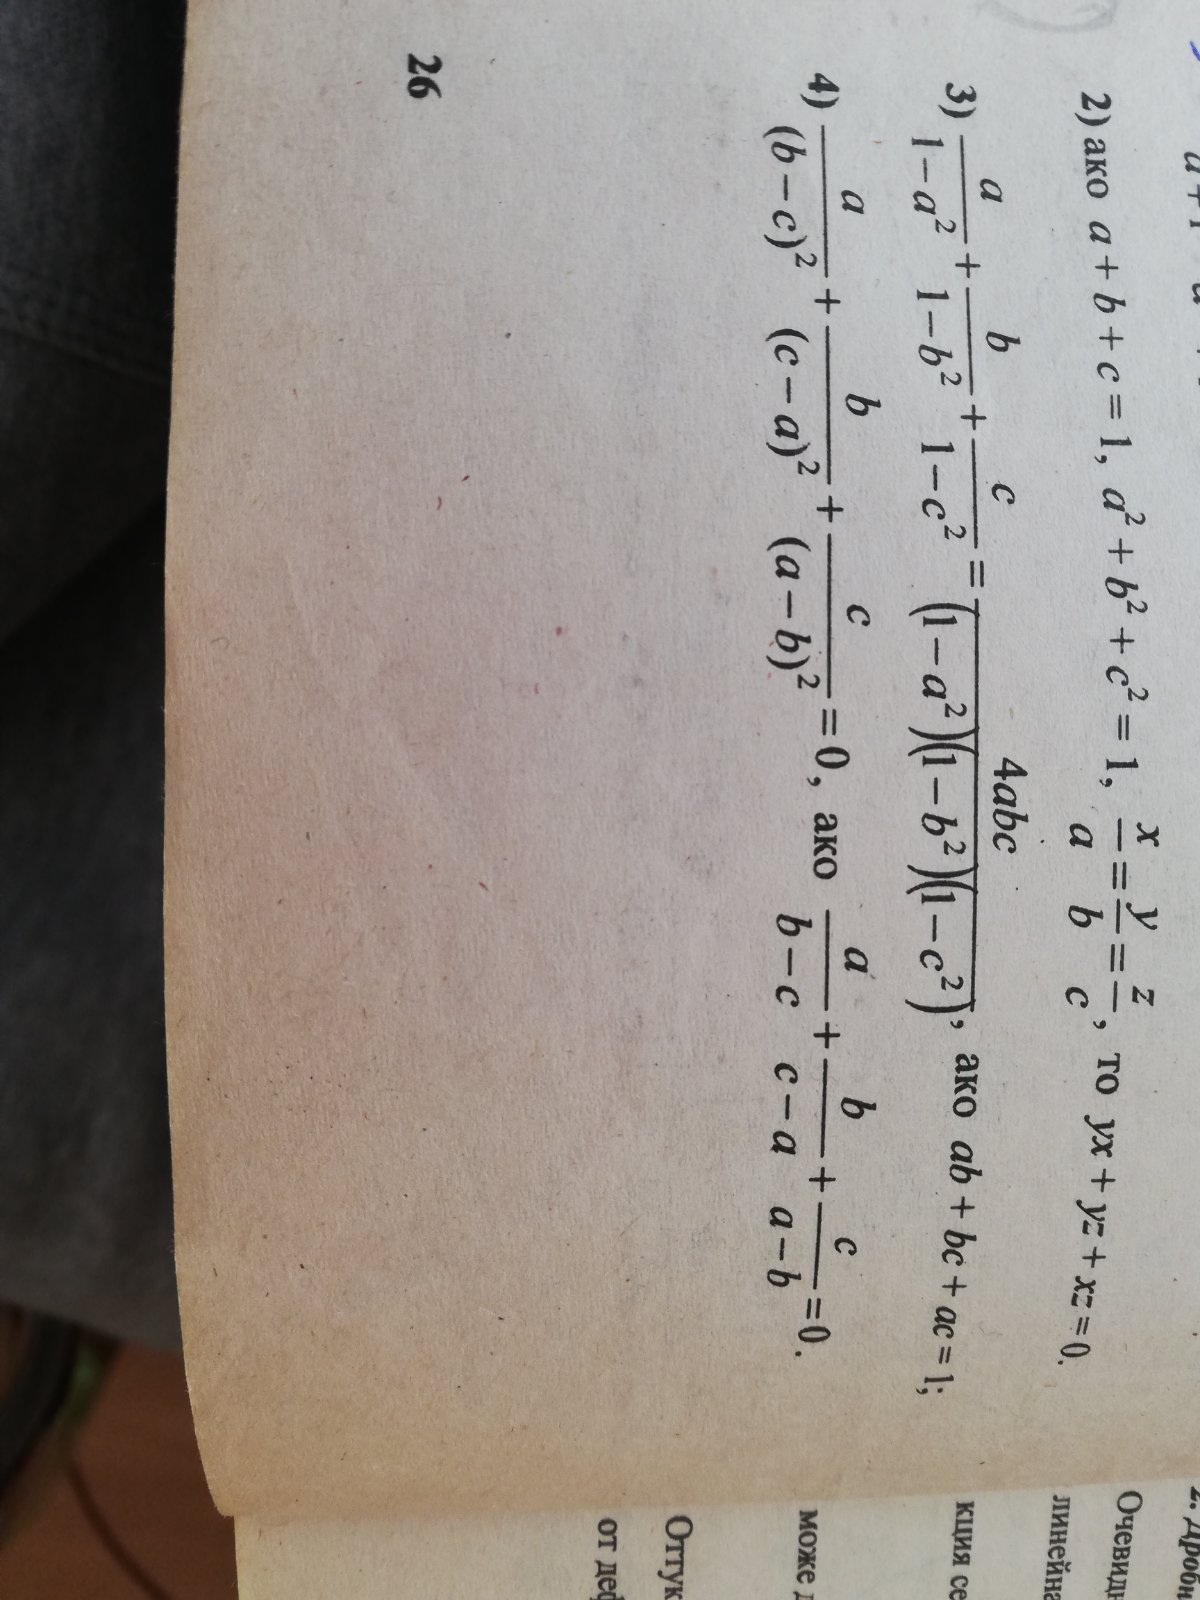 2) ако a + b + c = 1, a² + b² + c² = 1, x/a = y/b = z/c, то yx + yz + xz = 0.
3) a/(1−a²) + b/(1−b²) + c/(1−c²) = 4abc/((1−a²)(1−b²)(1−c²)), ако ab + bc + ac = 1;
4) a/(b−c)² + b/(c−a)² + c/(a−b)² = 0, ако a/(b−c) + b/(c−a) + c/(a−b) = 0.
26
Очевидн
линейна
кция се
може д
Оттук
от деф